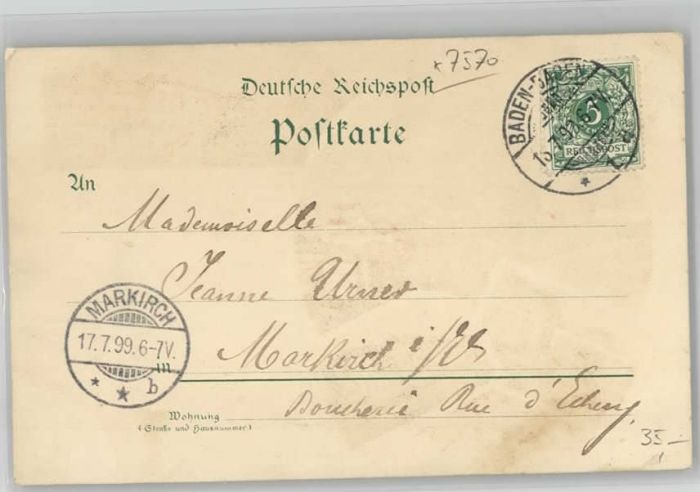 *7570
Deutsche Reichspost
Postkarte
BADEN-BADEN
5
REICHSPOST
An
Mademoiselle
Jeanne
Markirch
MARKIRCH
17.7.99.6-7V.
* * b
in
Boucherie Rue
Wohnung
(Straße und Hausnummer)
35.-